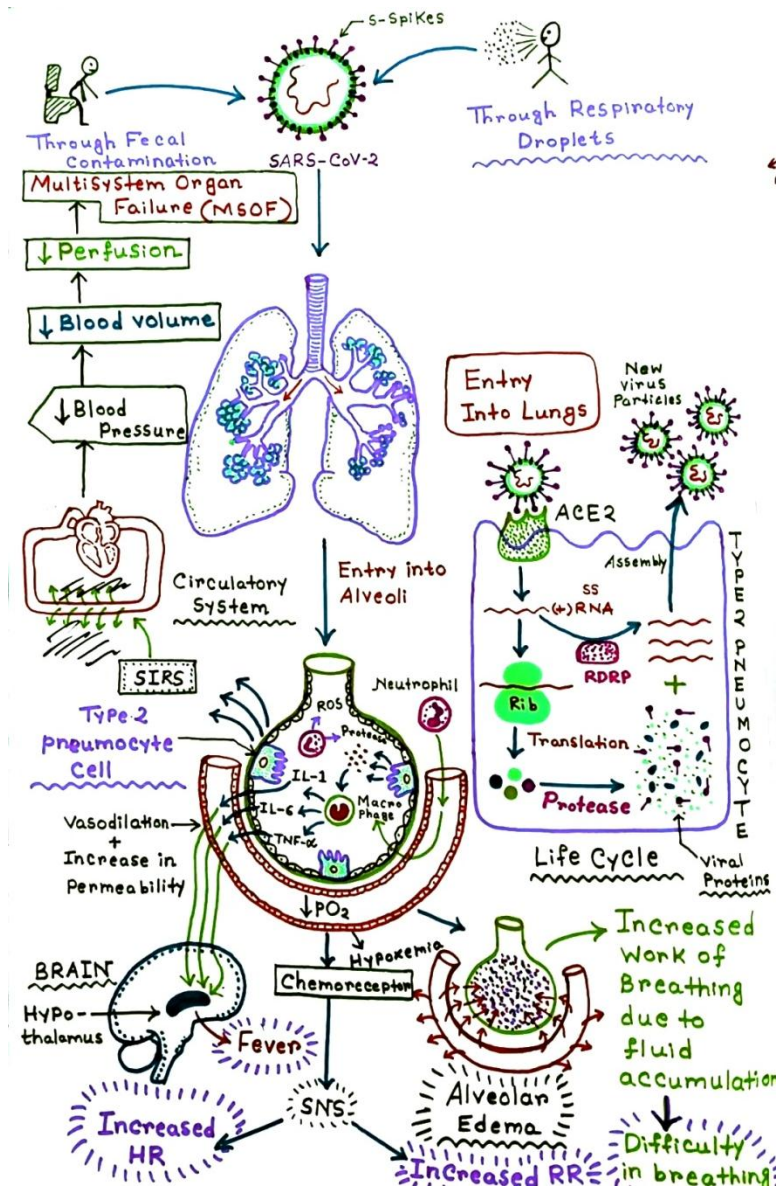 S-Spikes
Through Fecal
Contamination
SARS-CoV-2
Through Respiratory
Droplets
Multisystem Organ
Failure (MSOF)
↓ Perfusion
↓ Blood volume
↓ Blood
Pressure
Circulatory
System
SIRS
Entry into
Alveoli
Entry
Into Lungs
New
Virus
Particles
ACE2
Assembly
SS
(+)RNA
RDRP
+
Rib
Translation
Protease
Viral
Proteins
Life Cycle
TYPE 2 PNEUMOCYTE
Type-2
Pneumocyte
Cell
Neutrophil
ROS
Protease
IL-1
IL-6
TNF-α
Macro
phage
Vasodilation
+
Increase in
Permeability
↓PO2
Hypoxemia
Chemoreceptor
BRAIN
Hypo-
thalamus
Fever
SNS
Increased
HR
Increased RR
Alveolar
Edema
Increased
Work of
Breathing
due to
fluid
accumulation
Difficulty
in breathing